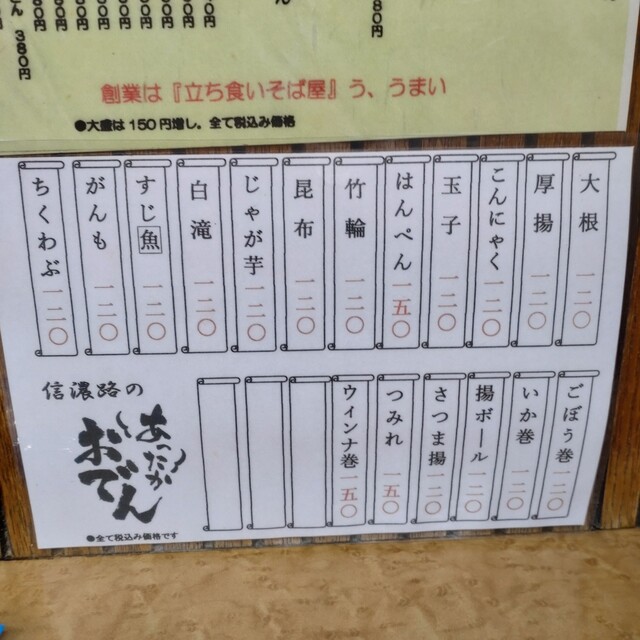 380円
80円
創業は『立ち食いそば屋』う、うまい
●大盛は150円増し。全て税込み価格
大根 一二〇
厚揚 一二〇
こんにゃく 一二〇
玉子 一二〇
はんぺん 一五〇
竹輪 一二〇
昆布 一二〇
じゃが芋 一二〇
白滝 一二〇
すじ魚 一二〇
がんも 一二〇
ちくわぶ 一二〇
ごぼう巻 一二〇
いか巻 一二〇
揚ボール 一二〇
さつま揚 一二〇
つみれ 一五〇
ウインナ巻 一五〇
信濃路の
あったか
おでん
●全て税込み価格です